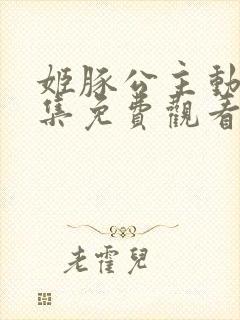 姬豚公主動
集免費觀看
老霍兒